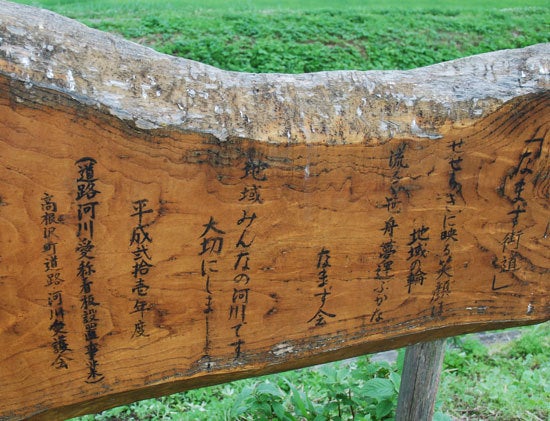 「なまず街道」
せせらぎに映る笑顔は
地域の輪
流る世舟夢運ぶかな
なまず会
地域みんなの河川です
大切にしましょう
平成弐拾壱年度
(道路河川愛称看板設置事業)
高根沢町道路河川愛護会